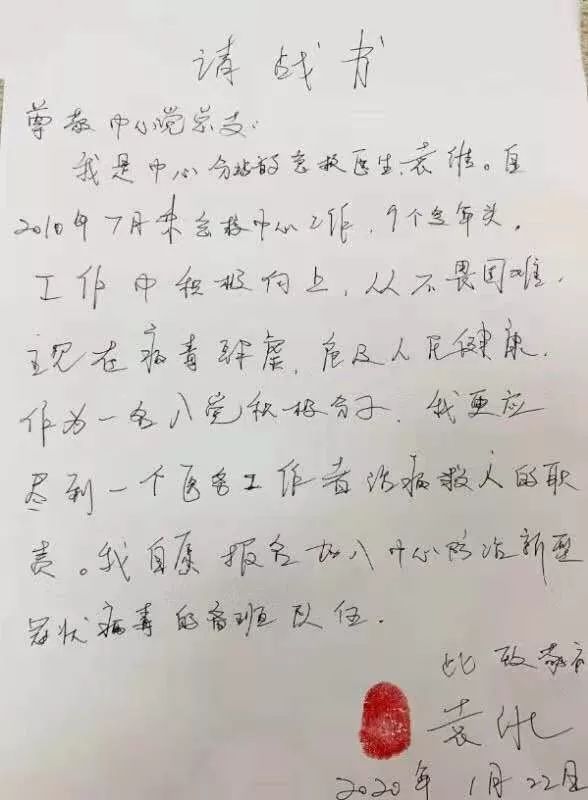 请战书
尊敬中心党总支:
我是中心分站的急救医生袁维。自
2010年7月来急救中心工作,9个多年头,
工作中积极向上,从不畏困难,
现在病毒肆虐,危及人民健康,
作为一名入党积极分子,我更应
尽到一个医务工作者治病救人的职
责。我自愿报名加入中心防治新型
冠状病毒的备班队伍.
此致敬礼
袁
2020年1月22日